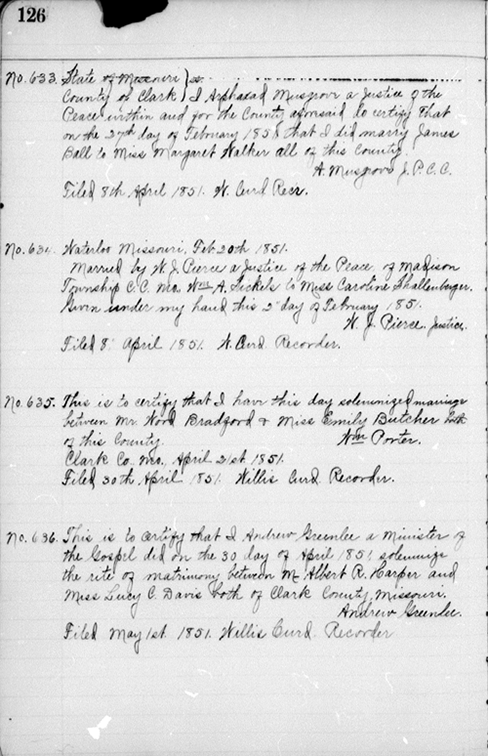 126
No. 633. State of Missouri } ss.
County of Clark } I Arphaxad Musgrove a Justice of the
Peace within and for the County aforesaid do certify that
on the 27th day of February 1851 that I did marry James
Ball to Miss Margaret Walker all of this County.
A. Musgrove J.P.C.C.
Filed 8th April 1851. W. Curd Recr.
No. 634. Waterloo Missouri, Feb. 20th 1851.
Married by W. J. Pierce a Justice of the Peace of Madison
Township C.C. Mo. Wm A. Sickels to Miss Caroline Shallenbarger.
Given under my hand this 2" day of February 1851.
W. J. Pierce, Justice.
Filed 8" April 1851. W. Curd. Recorder.
No. 635. This is to certify that I have this day solemnized marriage
between Mr. Wood Bradford & Miss Emily Butcher both
of this County. Wm Porter.
Clark Co. Mo. April 21st 1851.
Filed 30th April 1851. Willis Curd Recorder.
No. 636. This is to certify that I Andrew Greenlee a Minister of
the Gospel did on the 30 day of April 1851, solemnize
the rite of matrimony between Mr Albert R. Harper and
Miss Lucy C. Davis both of Clark County, Missouri.
Andrew Greenlee.
Filed May 1st 1851. Willis Curd Recorder